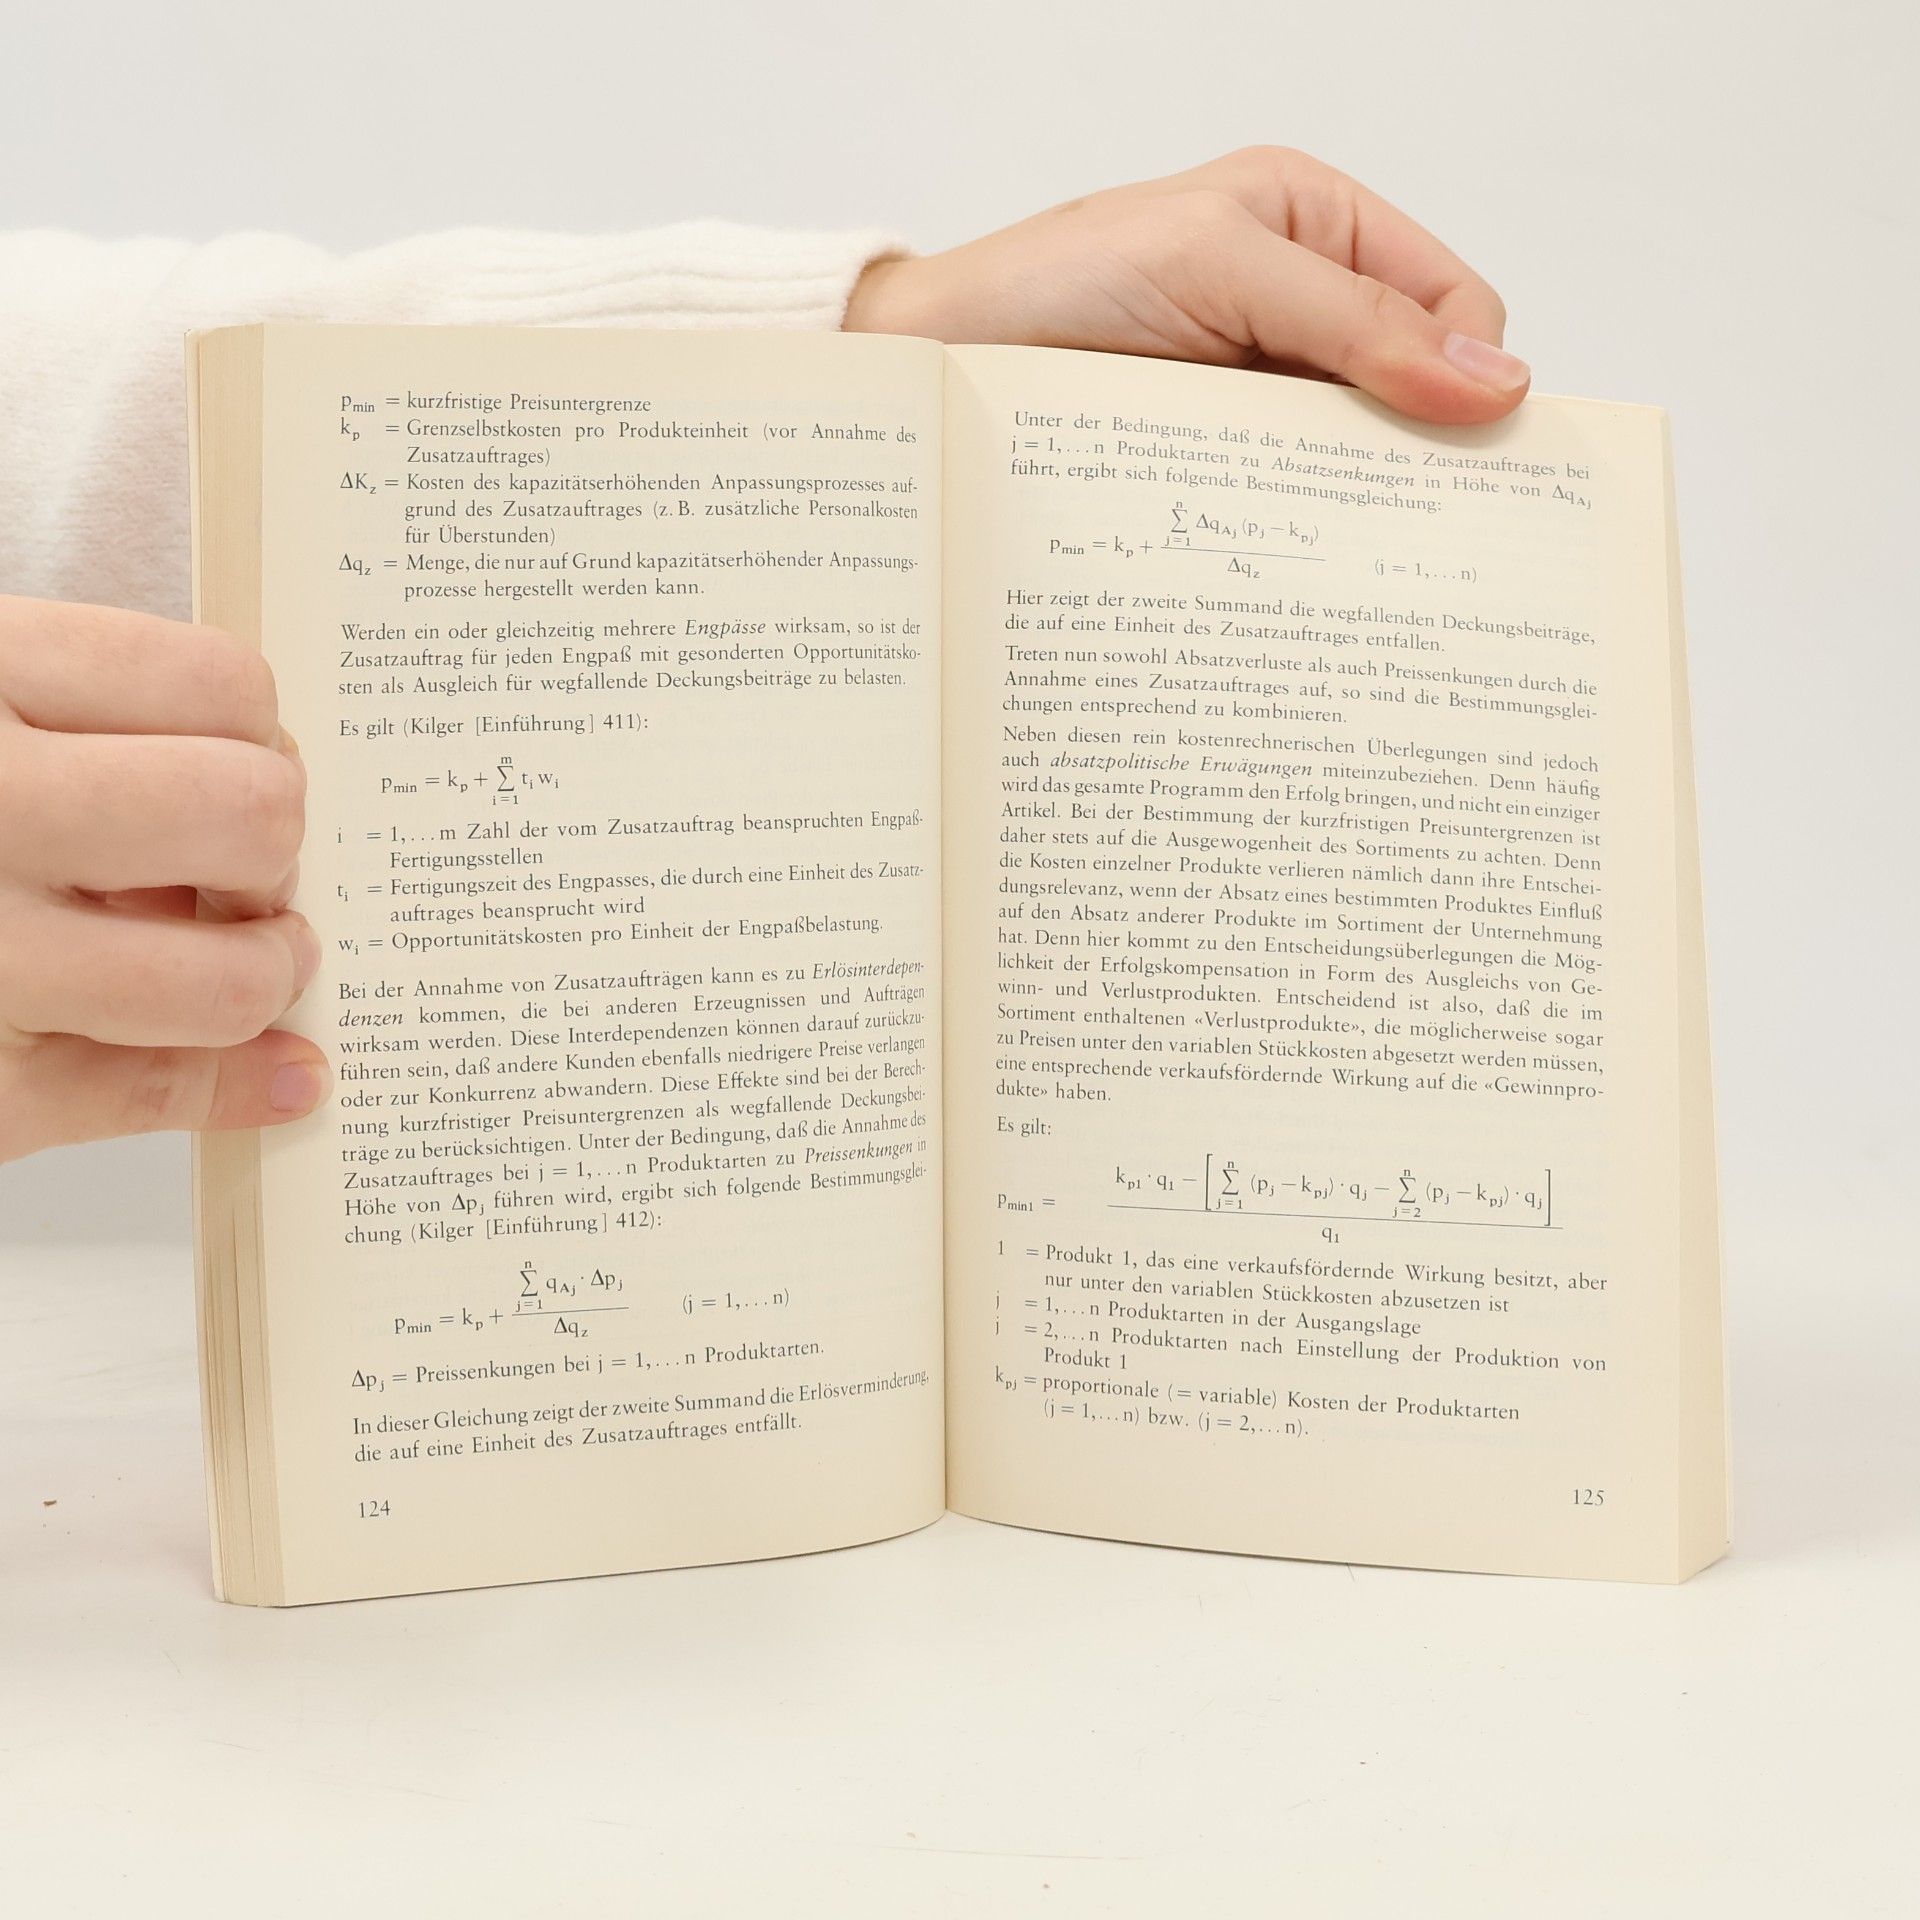 p_min = kurzfristige Preisuntergrenze
k_p = Grenzselbstkosten pro Produkteinheit (vor Annahme des
Zusatzauftrages)
ΔK_z = Kosten des kapazitätserhöhenden Anpassungsprozesses auf-
grund des Zusatzauftrages (z. B. zusätzliche Personalkosten
für Überstunden)
Δq_z = Menge, die nur auf Grund kapazitätserhöhender Anpassungs-
prozesse hergestellt werden kann.
Werden ein oder gleichzeitig mehrere Engpässe wirksam, so ist der
Zusatzauftrag für jeden Engpaß mit gesonderten Opportunitätsko-
sten als Ausgleich für wegfallende Deckungsbeiträge zu belasten.
Es gilt (Kilger [Einführung] 411):
p_min = k_p + ∑_{i=1}^{m} t_i w_i
i = 1,...m Zahl der vom Zusatzauftrag beanspruchten Engpaß-
Fertigungsstellen
t_i = Fertigungszeit des Engpasses, die durch eine Einheit des Zusatz-
auftrages beansprucht wird
w_i = Opportunitätskosten pro Einheit der Engpaßbelastung.
Bei der Annahme von Zusatzaufträgen kann es zu Erlösinterdepen-
denzen kommen, die bei anderen Erzeugnissen und Aufträgen
wirksam werden. Diese Interdependenzen können darauf zurückzu-
führen sein, daß andere Kunden ebenfalls niedrigere Preise verlangen
oder zur Konkurrenz abwandern. Diese Effekte sind bei der Berech-
nung kurzfristiger Preisuntergrenzen als wegfallende Deckungsbei-
träge zu berücksichtigen. Unter der Bedingung, daß die Annahme des
Zusatzauftrages bei j = 1,...n Produktarten zu Preissenkungen in
Höhe von Δp_j führen wird, ergibt sich folgende Bestimmungsglei-
chung (Kilger [Einführung] 412):
p_min = k_p + (∑_{j=1}^{n} q_{Aj} · Δp_j) / Δq_z (j = 1,...n)
Δp_j = Preissenkungen bei j = 1,...n Produktarten.
In dieser Gleichung zeigt der zweite Summand die Erlösverminderung,
die auf eine Einheit des Zusatzauftrages entfällt.
124
Unter der Bedingung, daß die Annahme des Zusatzauftrages bei
j = 1,...n Produktarten zu Absatzsenkungen in Höhe von Δq_{Aj}
führt, ergibt sich folgende Bestimmungsgleichung:
p_min = k_p + (∑_{j=1}^{n} Δq_{Aj} (p_j − k_{pj})) / Δq_z (j = 1,...n)
Hier zeigt der zweite Summand die wegfallenden Deckungsbeiträge,
die auf eine Einheit des Zusatzauftrages entfallen.
Treten nun sowohl Absatzverluste als auch Preissenkungen durch die
Annahme eines Zusatzauftrages auf, so sind die Bestimmungsglei-
chungen entsprechend zu kombinieren.
Neben diesen rein kostenrechnerischen Überlegungen sind jedoch
auch absatzpolitische Erwägungen miteinzubeziehen. Denn häufig
wird das gesamte Programm den Erfolg bringen, und nicht ein einziger
Artikel. Bei der Bestimmung der kurzfristigen Preisuntergrenzen ist
daher stets auf die Ausgewogenheit des Sortiments zu achten. Denn
die Kosten einzelner Produkte verlieren nämlich dann ihre Entschei-
dungsrelevanz, wenn der Absatz eines bestimmten Produktes Einfluß
auf den Absatz anderer Produkte im Sortiment der Unternehmung
hat. Denn hier kommt zu den Entscheidungsüberlegungen die Mög-
lichkeit der Erfolgskompensation in Form des Ausgleichs von Ge-
winn- und Verlustprodukten. Entscheidend ist also, daß die im
Sortiment enthaltenen «Verlustprodukte», die möglicherweise sogar
zu Preisen unter den variablen Stückkosten abgesetzt werden müssen,
eine entsprechende verkaufsfördernde Wirkung auf die «Gewinnpro-
dukte» haben.
Es gilt:
p_min1 = (k_{p1} · q_1 − [∑_{j=1}^{n} (p_j − k_{pj}) · q_j − ∑_{j=2}^{n} (p_j − k_{pj}) · q_j]) / q_1
1 = Produkt 1, das eine verkaufsfördernde Wirkung besitzt, aber
nur unter den variablen Stückkosten abzusetzen ist
j = 1,...n Produktarten in der Ausgangslage
j = 2,...n Produktarten nach Einstellung der Produktion von
Produkt 1
k_{pj} = proportionale (= variable) Kosten der Produktarten
(j = 1,...n) bzw. (j = 2,...n).
125